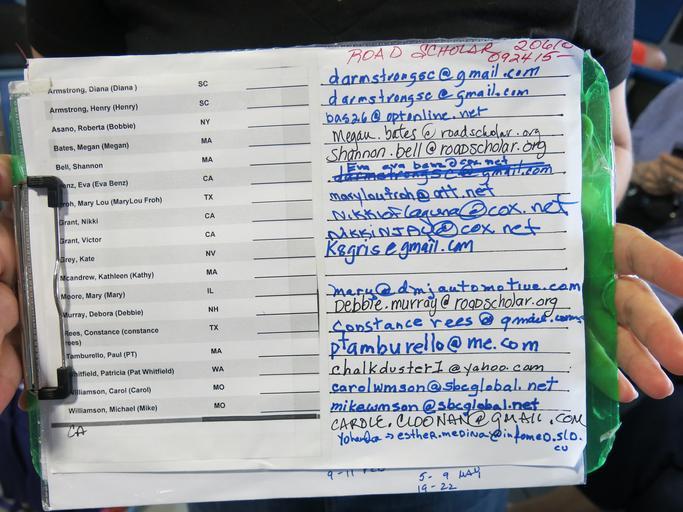 ROAD SCHOLAR 20610
092415-
Armstrong, Diana (Diana ) SC darmstrongsc@gmail.com
Armstrong, Henry (Henry) SC darmstrongsc@gmail.com
Asano, Roberta (Bobbie) NY bas26@optonline.net
Bates, Megan (Megan) MA Megan.bates@roadscholar.org
Bell, Shannon MA Shannon.bell@roadscholar.org
enz, Eva (Eva Benz) CA
roh, Mary Lou (MaryLou Froh) TX maryloufroh@att.net
Grant, Nikki CA Nikkioflaguna@cox.net
Grant, Victor CA NikkiNJA@cox.net
Grey, Kate NV K8gris@gmail.com
Mcandrew, Kathleen (Kathy) MA
Moore, Mary (Mary) IL mary@dmjautomotive.com
Murray, Debora (Debbie) NH Debbie.murray@roadscholar.org
Rees, Constance (constance TX constance rees@gmail.com
ees)
Tamburello, Paul (PT) MA ptamburello@me.com
Whitfield, Patricia (Pat Whitfield) WA chalkduster1@yahoo.com
Williamson, Carol (Carol) MO carolwmson@sbcglobal.net
Williamson, Michael (Mike) MO mikewmson@sbcglobal.net
CA CAROLE.CLOONAN@GMAIL.COM
Yohanka → esther.medina@infomed.sld.
cu
5-9 MAY
19-22